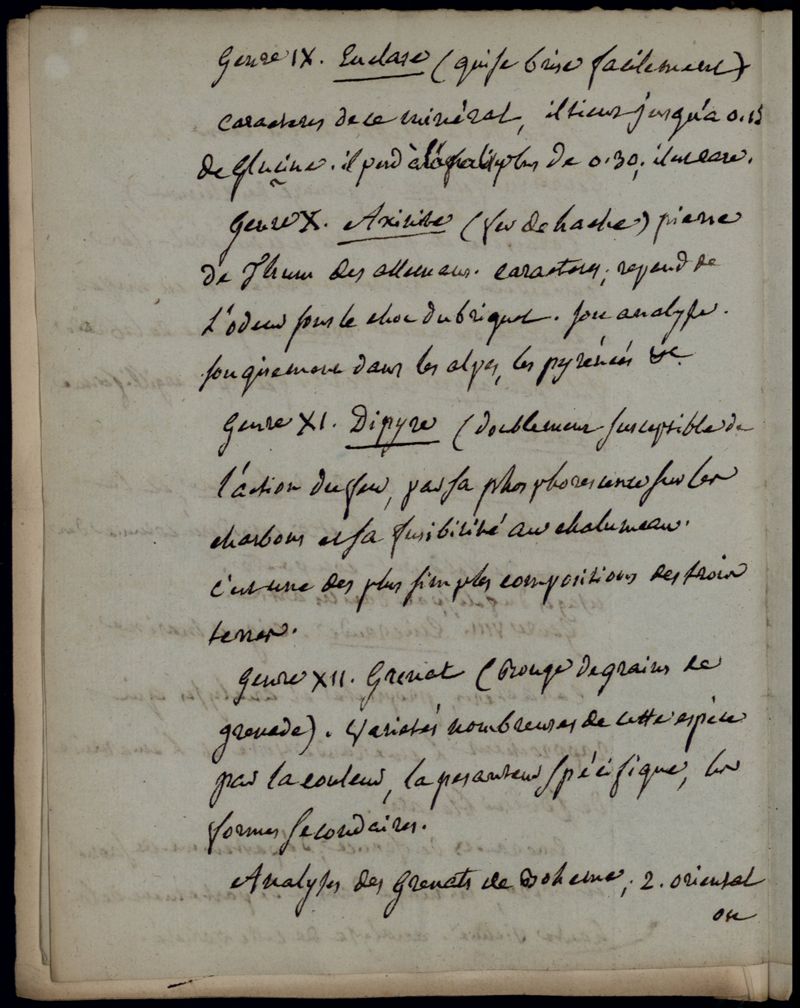 Genre IX. Euclase (qui se brise facilement)
caracteres de ce minéral, il tient jusqu'a 0.15
de Glucine. il perd à plus de 0.30; il est rare.
Genre X. Axinite (fer de hache) pierre
de Thum des allemans. caracteres; repend de
L'odeur sous le choc du briquet. son analyse.
son gisement dans les alpes, les pyrénées &c
Genre XI. Dipyre (doublement susceptible de
l'action du feu, par sa phosphorescence sur les
charbons et sa fusibilité au chalumeau.
c'est une des plus simples compositions des trois
terres.
Genre XII. Grenat (Rouge de grains de
grenade). Varietés nombreuses de cette espèce
par la couleur, la pesanteur spécifique, les
formes secondaires.
Analyses des Grenats de Boheme; 2. oriental
ou